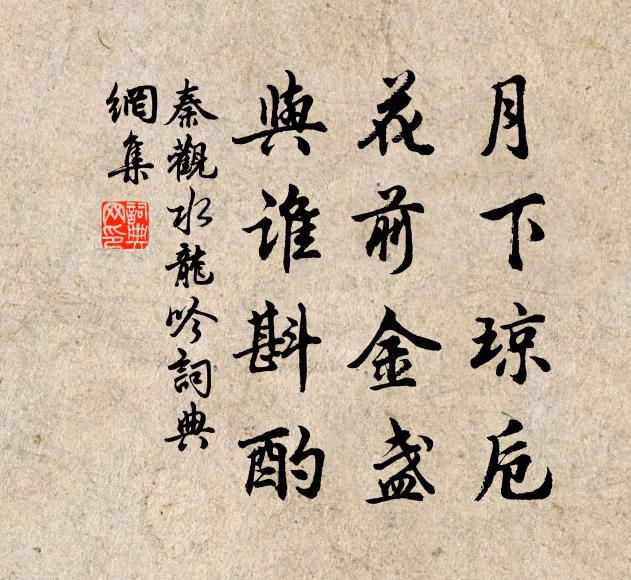 月下琼卮
花前金盏
與谁斟酌
秦觀水龍吟詞典
網集
詞典
网印